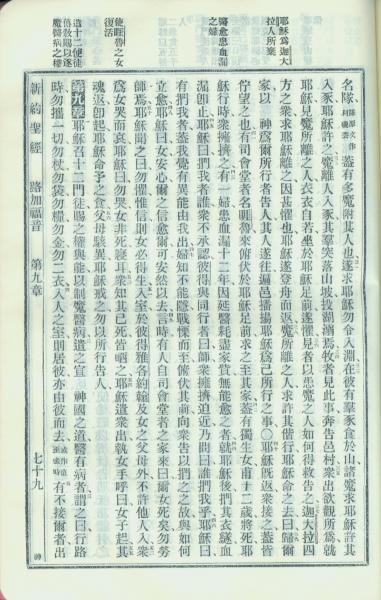 耶穌為迦大
拉人所棄
醫愈患血漏
之婦
使睚魯之女
復活
遣十二使徒
傳教賜以逐
魔醫病之權
名隊蓋有多魔附其人也遂求耶穌勿令入淵在彼有羣豕食於山諸魔求耶穌許其
入豕耶穌許之魔離人入豕其羣突落山坡入湖溺焉牧者見此事奔告邑村衆出欲觀所爲就
耶穌見魔所離之人衣衣自若坐於耶穌足前遂懼見者以患魔之人如何得救告之迦大拉四
方之衆求耶穌離之因甚懼也耶穌遂登舟而返魔所離之人求許其偕行耶穌命之去曰歸爾
家以 神爲爾所行者告人其人遂往遍邑播揚耶穌爲己所行之事○耶穌旣返衆接之蓋皆
佇望之也有司會堂者名睚魯來俯伏於耶穌足前求之至其家蓋有獨生女甫十二歲將死耶
穌行時衆擁擠之有一婦患血漏十二年因延醫耗盡家貲無能愈之者就耶穌後捫其衣繸血
漏卽止耶穌曰捫我者誰衆不承認彼得與同行者曰師衆擁擠迫近乃問曰誰捫我乎耶穌曰
有捫我者蓋我覺有異能由我出婦知不能隱戰慄而至俯伏其前向衆告以捫之之故與如何
立愈耶穌曰女安心爾之信愈爾可安然以去言時有人自司會堂者之家來曰爾女死矣勿勞
師焉耶穌聞之曰勿懼惟信則女必得生入室於彼得雅各約翰及女之父母外不許他人入衆
爲女哭而哀耶穌曰勿哭女非死寢耳衆知其已死皆哂之耶穌遣衆出執女手呼曰女子起其
魂返卽起耶穌命予之食父母駭異耶穌戒之勿以所行告人
第九章耶穌召十二門徒賜之權與能以制魔醫病遣之宣 神國之道醫有病者謂之曰行路
時勿攜一切勿杖勿袋勿糧勿金勿二衣入人之室則居彼亦由彼而去有不接爾者出
新約聖經 路加福音 第九章 七十九